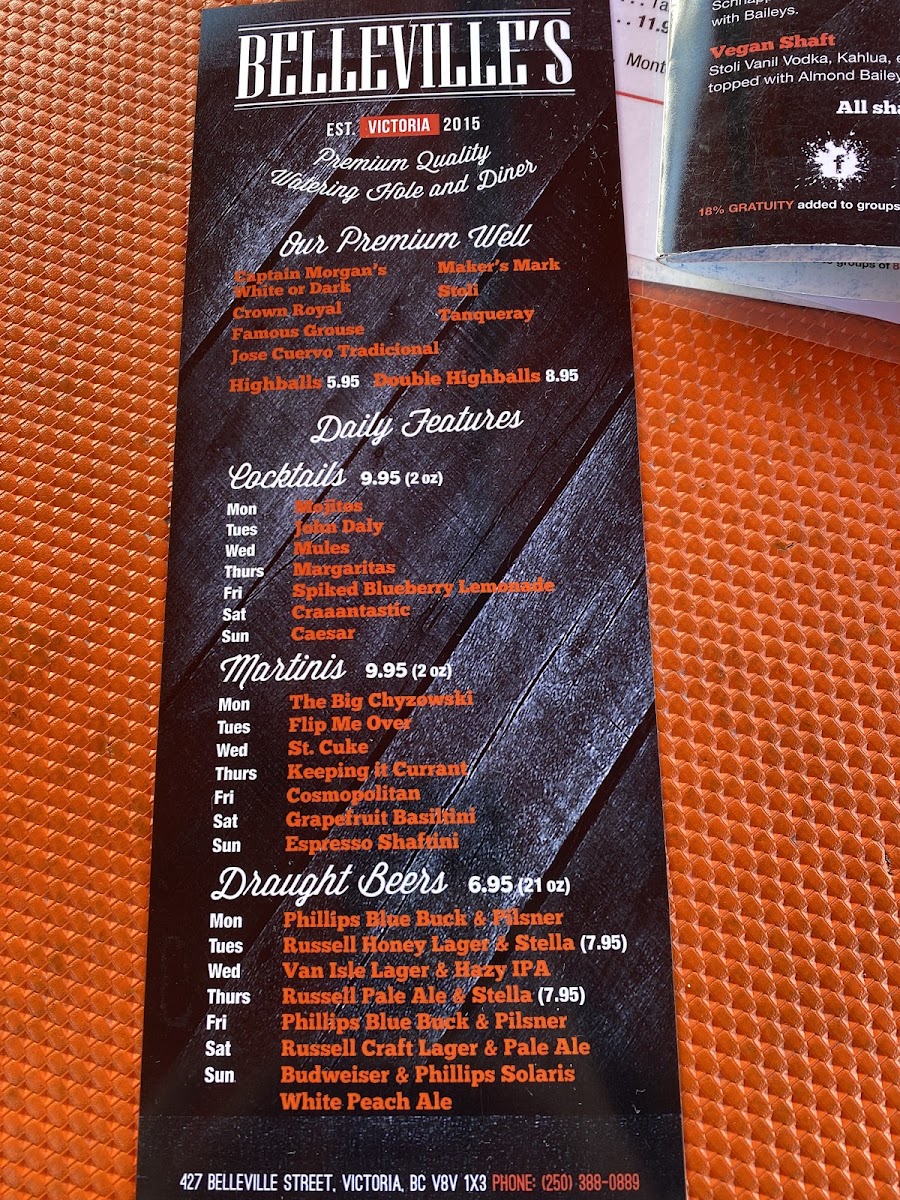 BELLEVILLE'S
EST. VICTORIA 2015
Premium Quality
Watering Hole and Diner
Our Premium Well
Captain Morgan's
White or Dark
Crown Royal
Famous Grouse
Jose Cuervo Tradicional
Maker's Mark
Stoli
Tanqueray
Highballs 5.95 Double Highballs 8.95
Daily Features
Cocktails 9.95 (2 oz)
Mon Mojitos
Tues John Daly
Wed Mules
Thurs Margaritas
Fri Spiked Blueberry Lemonade
Sat Craaantastic
Sun Caesar
Martinis 9.95 (2 oz)
Mon The Big Chyzowski
Tues Flip Me Over
Wed St. Cuke
Thurs Keeping it Currant
Fri Cosmopolitan
Sat Grapefruit Basiltini
Sun Espresso Shaftini
Draught Beers 6.95 (21 oz)
Mon Phillips Blue Buck & Pilsner
Tues Russell Honey Lager & Stella (7.95)
Wed Van Isle Lager & Hazy IPA
Thurs Russell Pale Ale & Stella (7.95)
Fri Phillips Blue Buck & Pilsner
Sat Russell Craft Lager & Pale Ale
Sun Budweiser & Phillips Solaris
White Peach Ale
427 BELLEVILLE STREET, VICTORIA, BC V8V 1X3 PHONE: (250) 388-0889
11.9
Mont
with Baileys.
Vegan Shaft
Stoli Vanil Vodka, Kahlua,
topped with Almond Bailey
All sha
f
18% GRATUITY added to groups
groups of 8